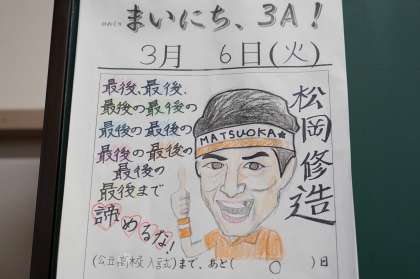 まいにち、3A!
3月 6日(火)
最後、最後、
最後の最後の
最後の最後の
最後の最後の
最後の
最後まで
諦めるな!
MATSUOKA
松岡修造
(公立高校入試)まで、あと( 0 )日